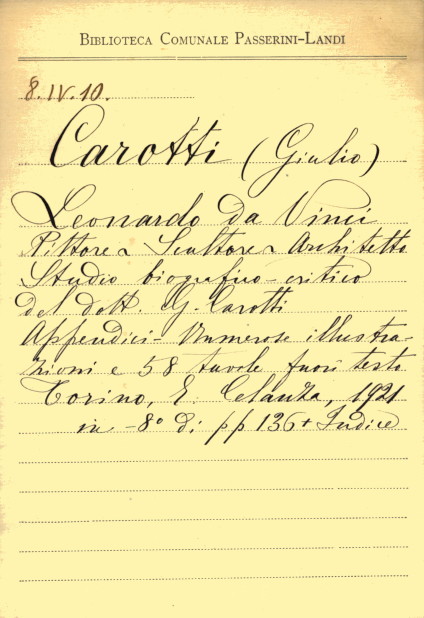 BIBLIOTECA COMUNALE PASSERINI-LANDI
8.IV.10.
Carotti (Giulio)
Leonardo da Vinci
Pittore Scultore Architetto
Studio biografico-critico
del dott. G. Carotti
Appendici - Numerose illustra-
zioni e 58 tavole fuori testo
Torino, E. Celanza, 1921
in -8° di pp 136 + Indice